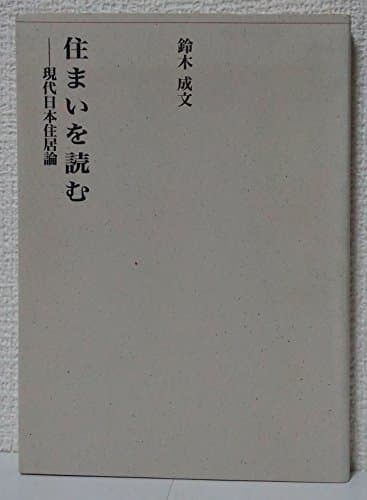 鈴木 成文
住まいを読む
——現代日本住居論